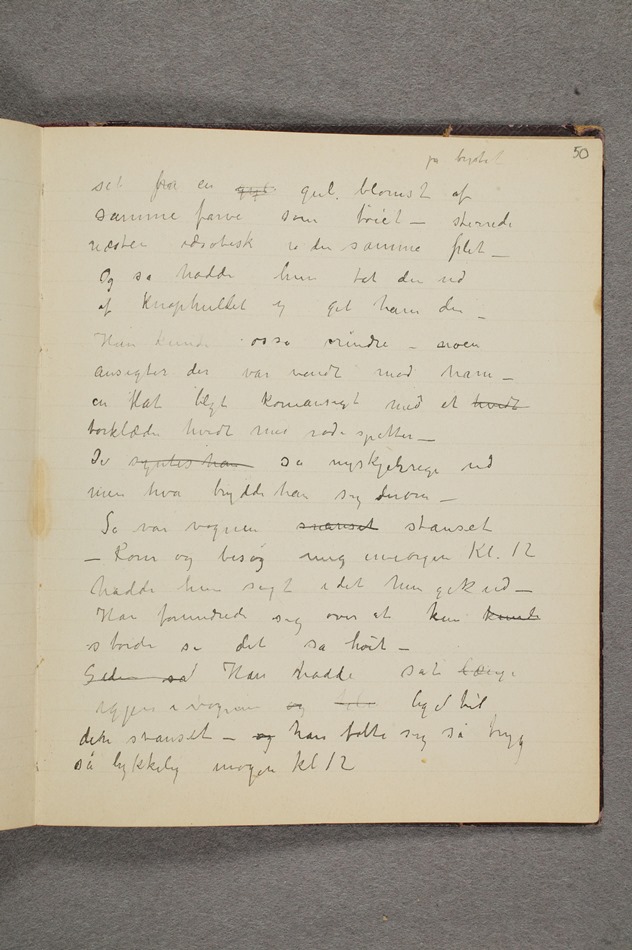 50
på brystet
set fra en gul. blomst af
samme farve som tøiet – stirrede
næsten idiotisk på den samme flet –
Og så hadde hun tat den ud
af knaphullet og get ham den –
Han kunde osså erindre – noen
ansigter der var vendt mod ham –
en flat blegt koneansigt med et hvidt
torklæde hvidt med røde spetter –
De syntes han så nyskjekrege ud
men hva brydde han sig derom –
Så var vognen stanset stanset
– Kom og besøg mig imorgen Kl. 12
hadde hun sagt idet hun gik ud –
Han forundrede sig over at hun kunde
torde se det så høit –
Siden så Han hadde sat længe
igjen i vognen og lige til
den stanset – og han følte sig så tryg
så lykkelig morgen kl 12